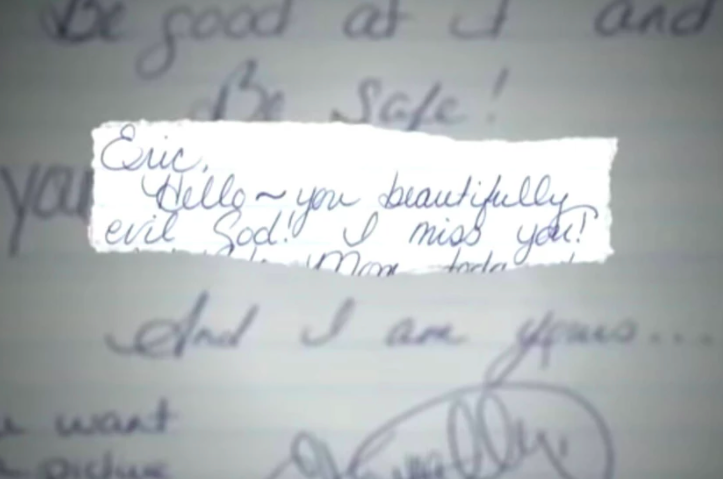 Be good at it and
Be Safe!
Eric,
you
Hello~you beautifully
evil God! I miss you!
Mom today
And I am yours...
want
picture